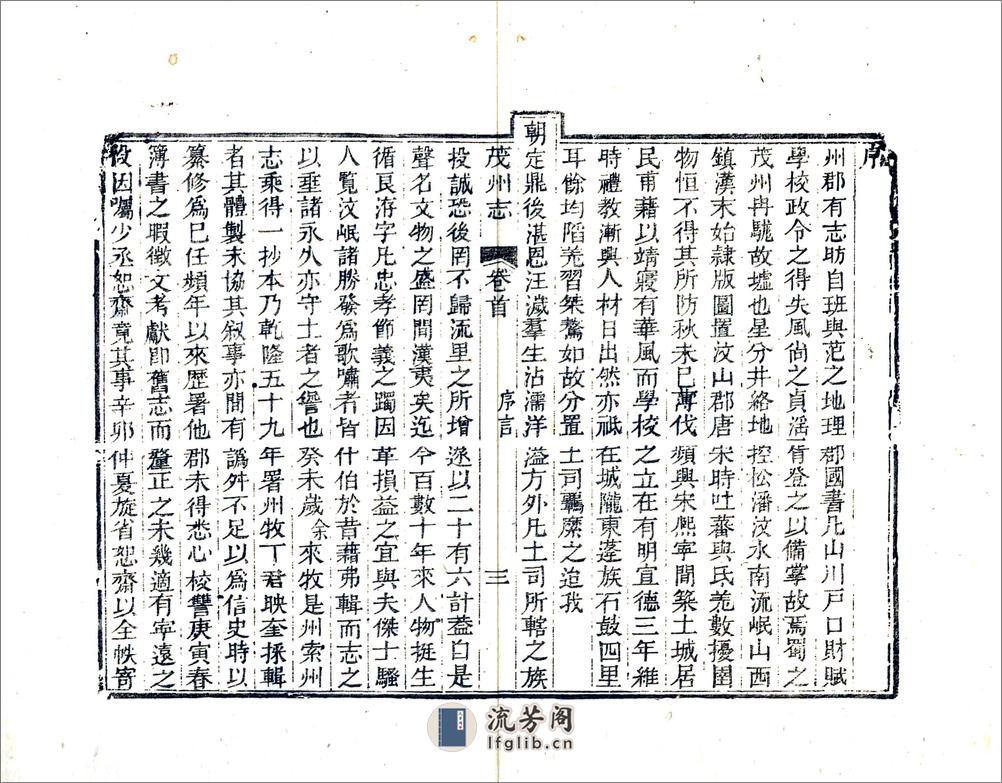 序
州郡有志昉自班與范之地理郡國書凡山川戸口財賦
學校政令之得失風尚之貞滛一一皆登之以備掌故焉蜀之
茂州冉駹故墟也星分井絡地控松潘汶水南流岷山西
鎮漢末始隷版圖置汶山郡唐宋時吐蕃與氐羗數擾圉
物恒不得其所防秋未已薄伐頻興宋熙寧間築土城居
民甫藉以靖寢有華風而學校之立在有明宣德三年維
時禮教漸興人材日出然亦祇在城隴東蓬族石鼓四里
耳餘均蹈羌習桀驁如故分置土司羈縻之迨我
朝定鼎後湛恩汪濊羣生沾濡洋溢方外凡土司所轄之族
茂州志 卷首 序言 三
投誠恐後罔不歸流里之所增遂以二十有六計葢自是
聲名文物之盛罔間漢夷矣迄今百數十年來人物挺生
循良洊字凡忠孝節義之躅因革損益之宜與夫傑士騷
人覧汶岷諸勝發爲歌嘯者皆什伯於昔藉弗輯而志之
以垂諸永久亦守土者之訾也癸未歲余來牧是州索州
志乘得一抄本乃乾隆五十九年署州牧丁君映奎採輯
者其體製未協其叙事亦間有譌舛不足以爲信史時以
纂修爲已任頻年以來歴署他郡未得悉心校讐庚寅春
簿書之暇徵文考獻卽舊志而釐正之未幾適有寧遠之
役因囑少丞恕齋竟其事辛卯仲夏旋省恕齋以全帙寄
流芳阁
lfglib.cn